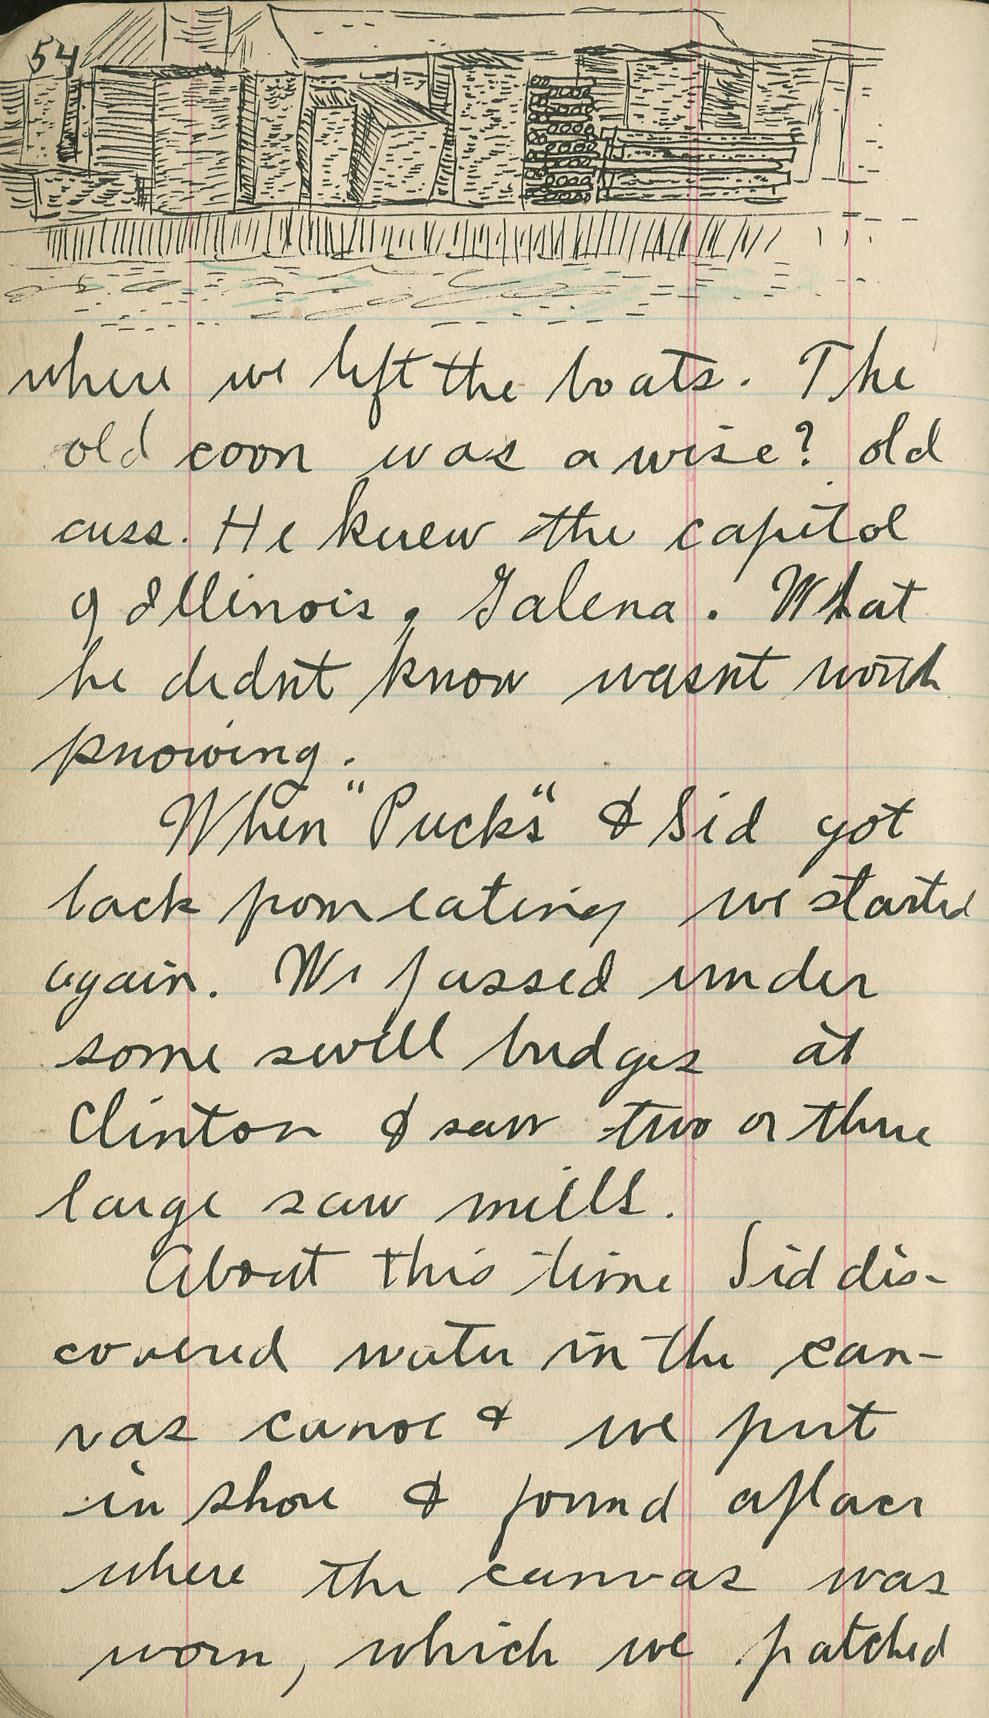 54
where we left the boats. The
old coon was a wise? old
cuss. He knew the capitol
of Illinois, Galena. What
he didnt know wasnt worth
knowing.
When "Pucks" & Sid got
back from eating we started
again. We passed under
some swell bridges at
Clinton & saw two or three
large saw mills.
About this time Sid dis-
covered water in the can-
vas canoe & we put
in shore & found a place
where the canvas was
worn, which we patched